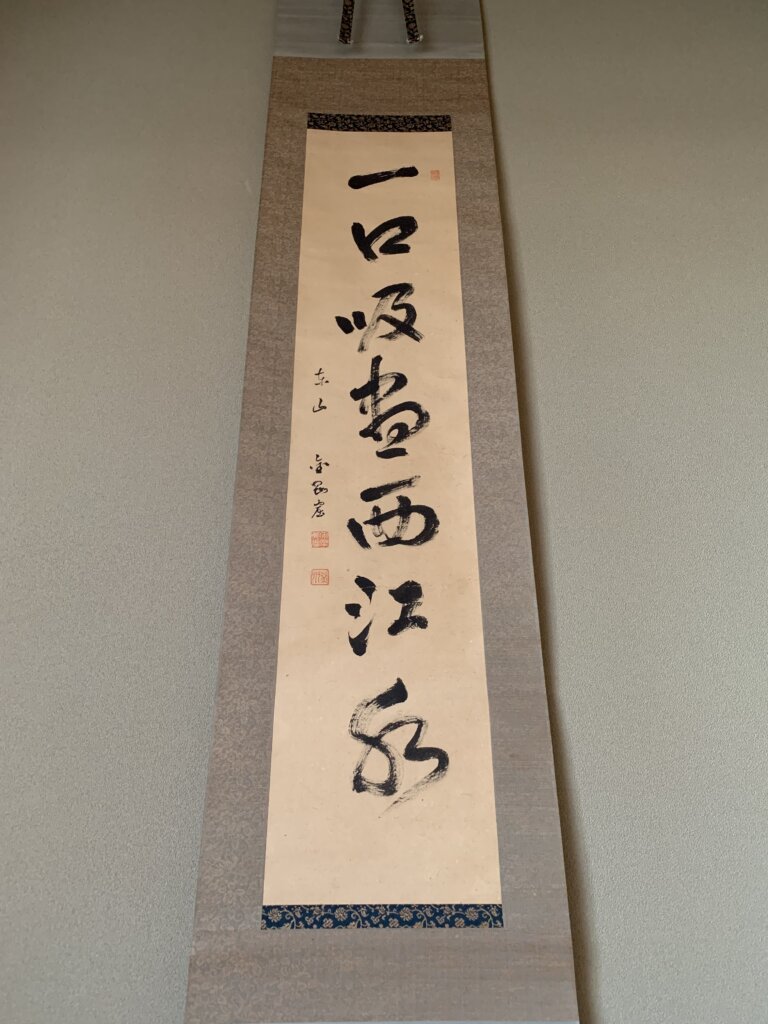 一口吸盡西江水
東山